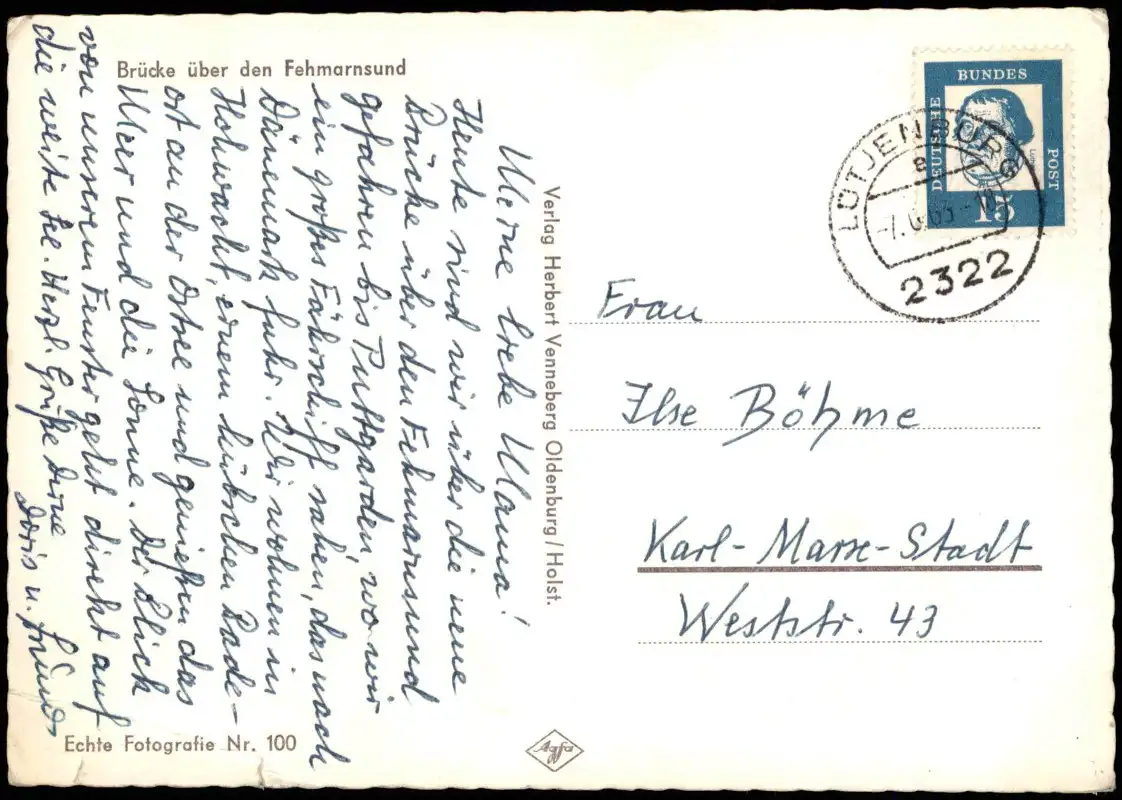 Brücke über den Fehmarnsund
Meine liebe Mama!
Heute sind wir über die neue
Brücke über den Fehmarnsund
gefahren bis Puttgarden, wo wir
ein großes Fährschiff sahen, das nach
Dänemark fuhr. Wir wohnen in
Hohwacht, einem hübschen Bade-
ort an der Ostsee und genießen das
Meer und die Sonne. Der Blick
von unserem Fenster geht direkt auf
die weite See. Herzl. Grüße Deine
Doris u.
Echte Fotografie Nr. 100
Verlag Herbert Venneberg Oldenburg/Holst.
Agfa
DEUTSCHE
BUNDES
POST
15
LÜTJENBURG
e
63-18
2322
Frau
Ilse Böhme
Karl-Marx-Stadt
Weststr. 43